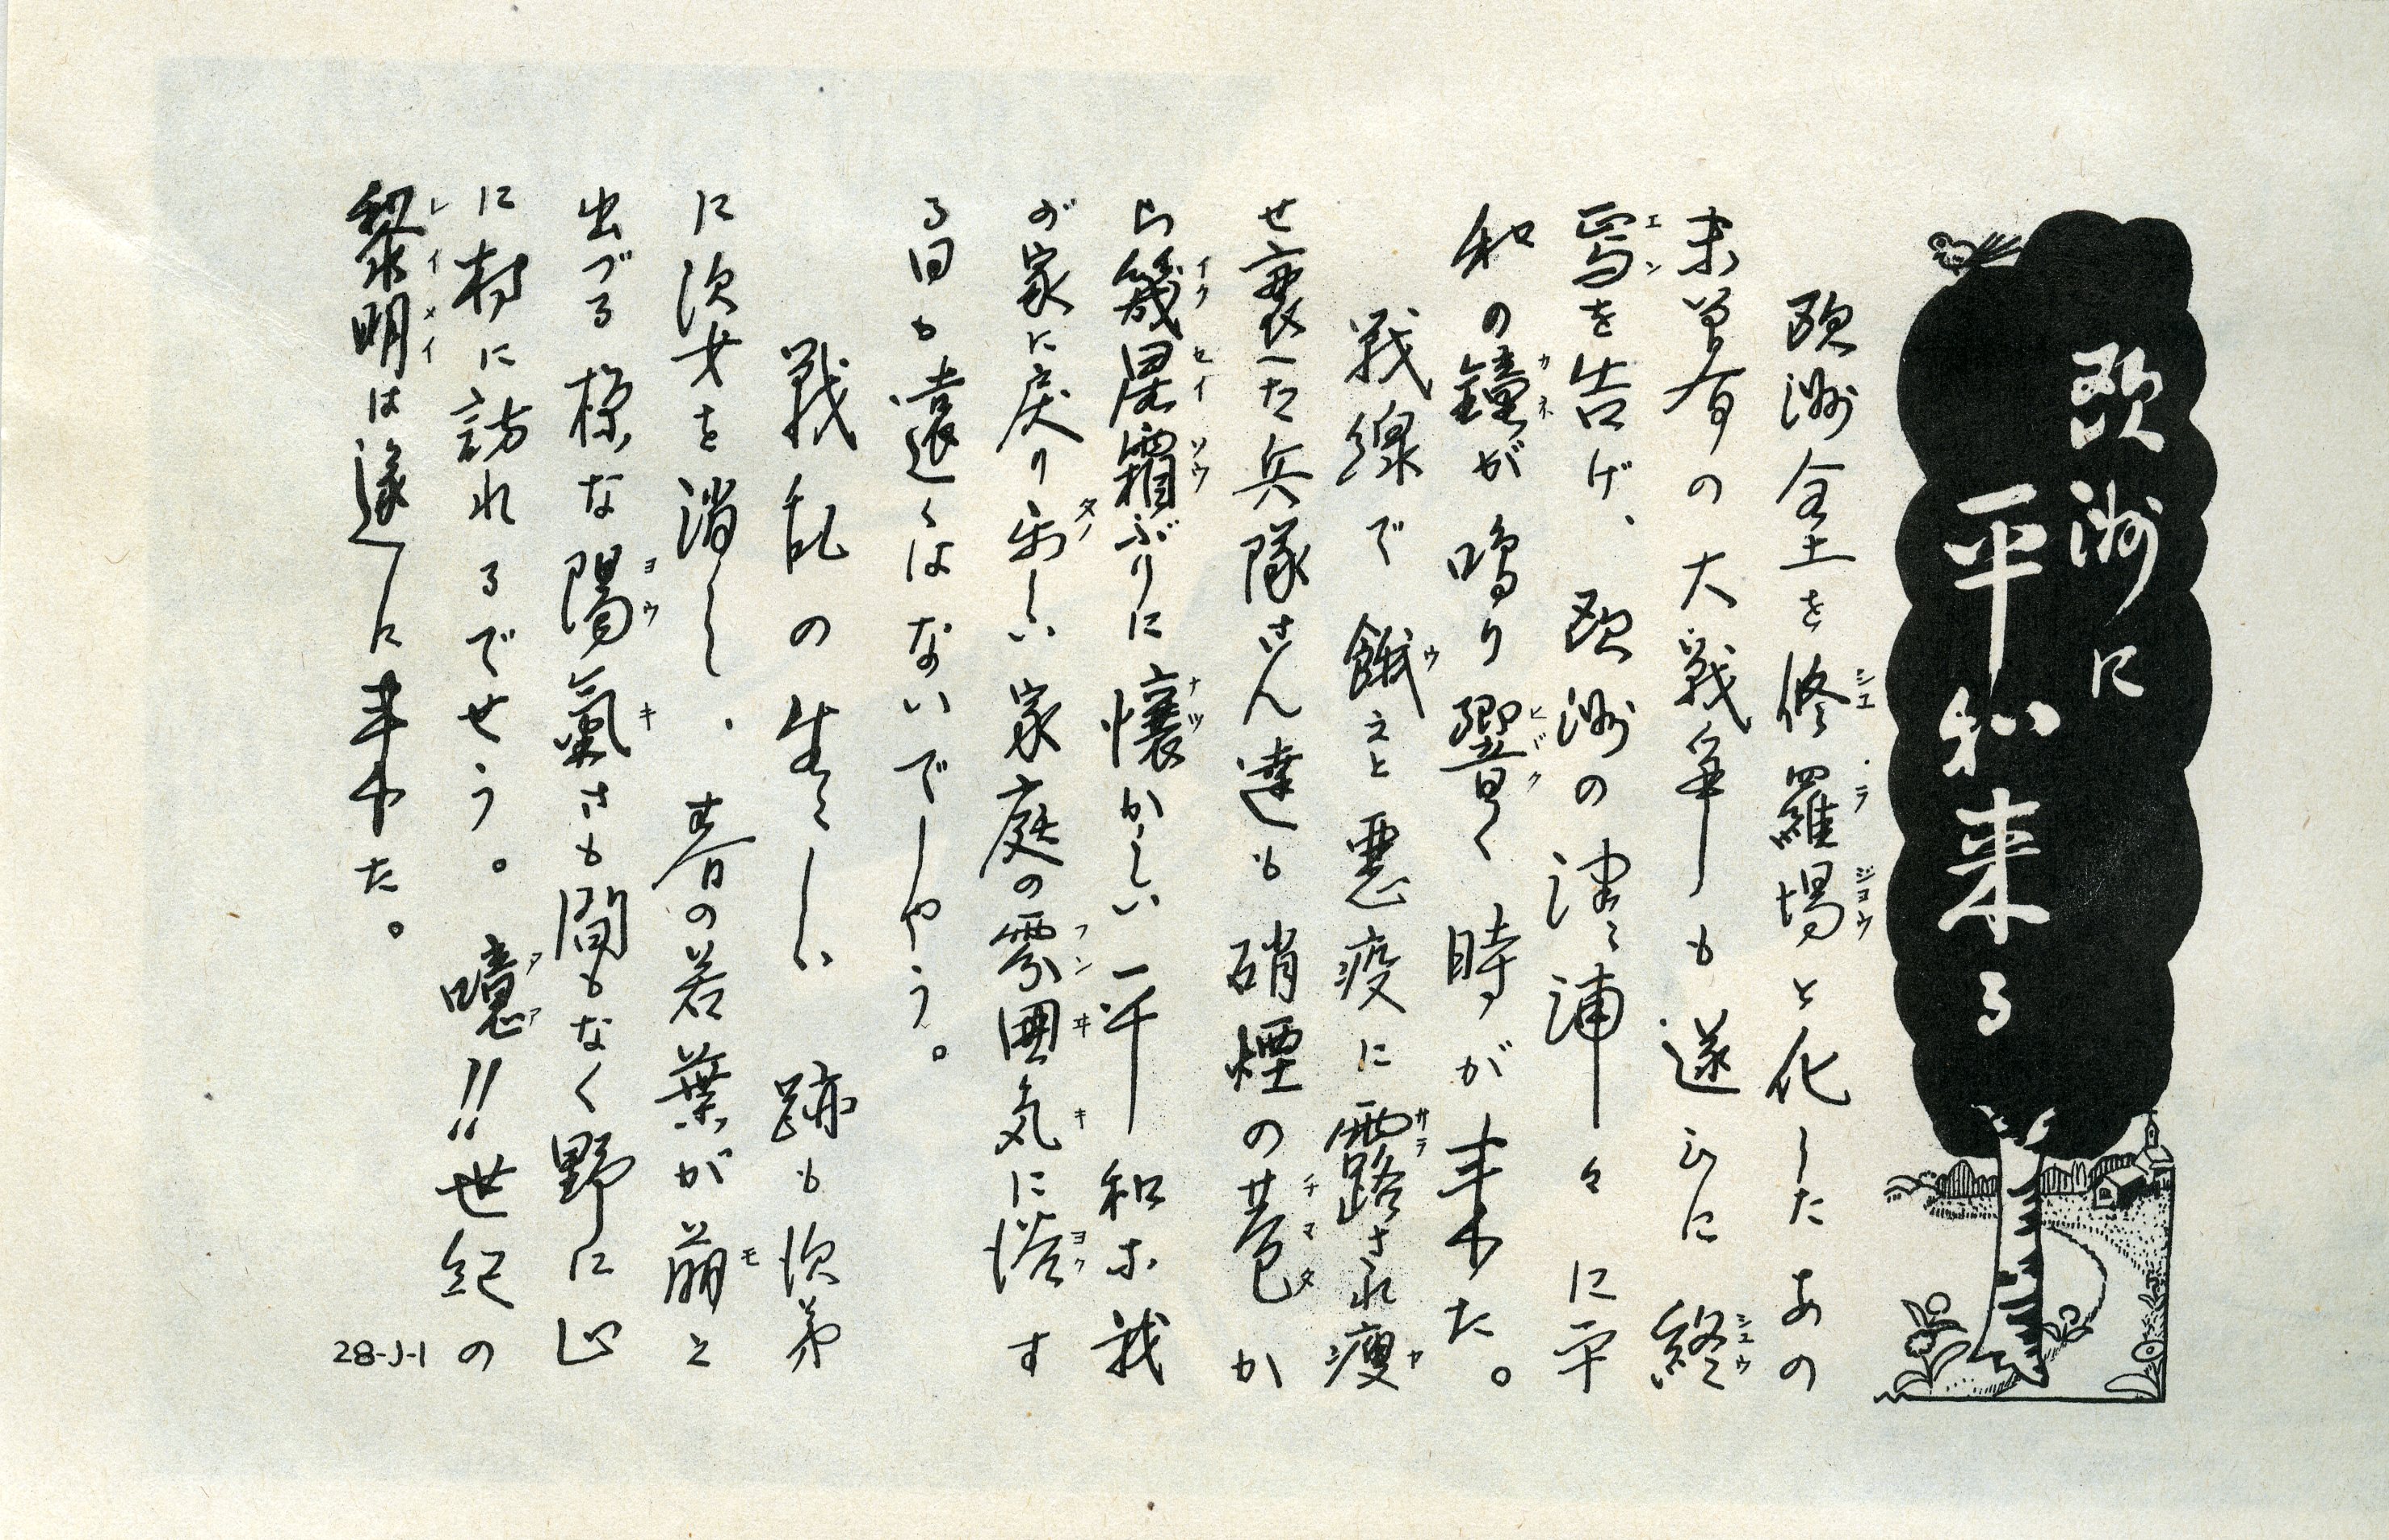 欧洲に
平和来る
欧洲全土を修羅場と化したあの
未曽有の大戦争も遂ひに終
焉を告げ、欧洲の津々浦々に平
和の鐘が鳴り響く時が来た。
戦線で餓えと悪疫に露され痩
せ衰へた兵隊さん達も硝煙の巷か
ら幾星霜ぶりに懐かしい平和な我
が家に戻り楽しい家庭の雰囲気に浴す
る日も遠くはないでしやう。
戦乱の生々しい跡も次第
に次才を消し、春の若葉が萠え
出づる様な陽氣さも間もなく野に山
に村に訪れるでせう。噫!!世紀の
黎明は遂に来た。
28-J-1